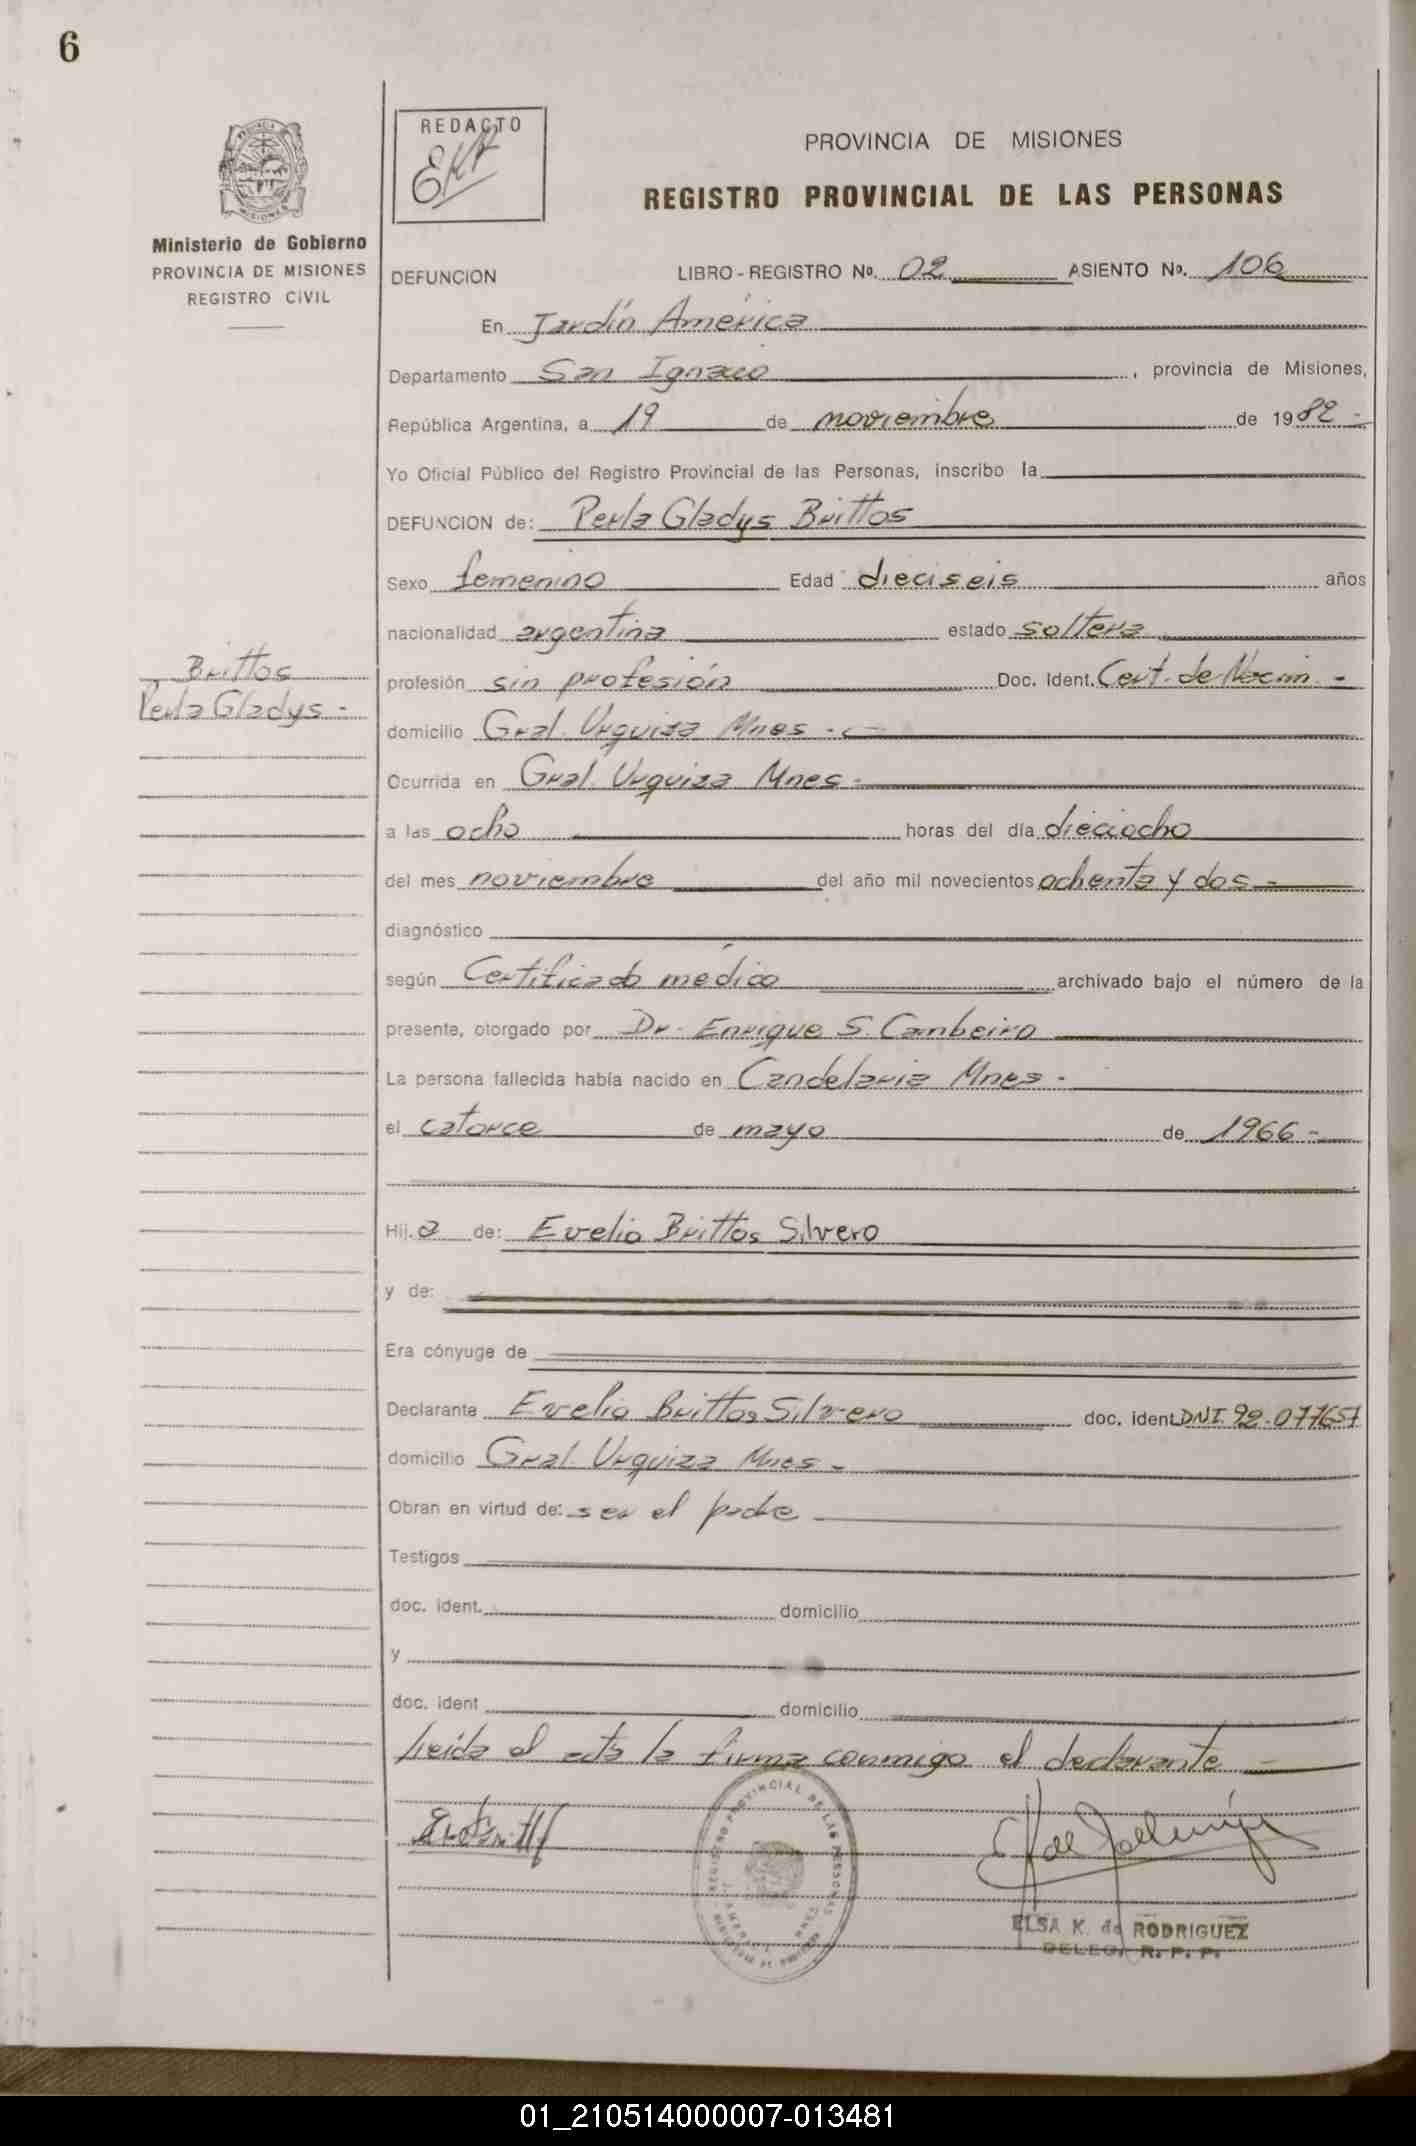 6
REDACTO
EKR
PROVINCIA DE MISIONES
REGISTRO PROVINCIAL DE LAS PERSONAS
Ministerio de Gobierno
PROVINCIA DE MISIONES
REGISTRO CIVIL
DEFUNCION LIBRO - REGISTRO Nº. 02 ASIENTO Nº. 106
En Jardín América
Departamento San Ignacio, provincia de Misiones,
República Argentina, a 19 de noviembre de 1982 -
Yo Oficial Público del Registro Provincial de las Personas, inscribo la
DEFUNCION de: Perla Gladys Brittos
Sexo femenino Edad dieciseis años
nacionalidad argentina estado soltera
Brittos
Perla Gladys -
profesión sin profesión Doc. Ident. Cert. de Nacim. -
domicilio Gral. Urquiza Mnes. -
Ocurrida en Gral. Urquiza Mnes -
a las ocho horas del día dieciocho
del mes noviembre del año mil novecientos ochenta y dos -
diagnóstico
según Certificado médico archivado bajo el número de la
presente, otorgado por Dr. Enrique S. Cambeiro
La persona fallecida había nacido en Candelaria Mnes -
el catorce de mayo de 1966 -
Hij.a de: Evelio Brittos Silvero
y de:
Era cónyuge de
Declarante Evelio Brittos Silvero doc. ident. DNI. 92.077657
domicilio Gral. Urquiza Mnes -
Obran en virtud de: ser el padre
Testigos
doc. ident. domicilio
y
doc. ident domicilio
Leída el acta la firma conmigo el declarante -
REGISTRO PROVINCIAL DE LAS PERSONAS
ELSA K. de RODRIGUEZ
DELEG. R. P. P.
01_210514000007-013481